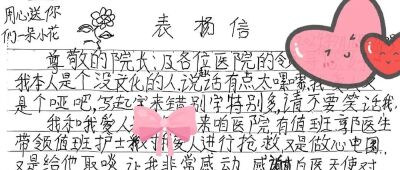 用心送你
们一朵小花
表杨信
尊敬的院长,及各位医院的领
我本人是个没文化的人,说话有点太啰嗦,我
是个哑吧,写起字来错别字特别多,请不要笑话我.
我和我爱人 来咱医院,有值班享医生
带领值班护士 爱人进行抢救,又是做心电图.
又是给他取痰,让我非常感动.感谢白医天使对